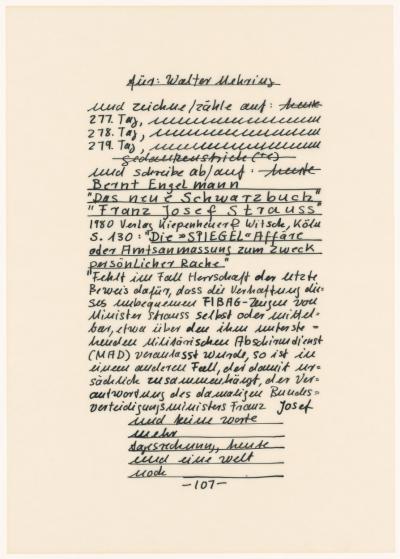 für: Walter Mehring
und zeichne/zähle auf: heute
277. Tag,
278. Tag,
279. Tag,
Gedankenstrich(e)
und schreibe ab/auf: heute
Bernt Engelmann
"Das neue Schwarzbuch"
"Franz Josef Strauss"
1980 Verlag Kiepenheuer & Witsch, Köln
S. 130: "Die »SPIEGEL« Affäre
oder Amtsanmassung zum Zweck
persönlicher Rache"
"Fehlt im Fall Herrschaft der letzte
Beweis dafür, dass die Verhaftung die-
ses unbequemen FIBAG-Zeugen von
Minister Strauss selbst oder mittel-
bar, etwa über den ihm unterste-
henden Militärischen Abschirmdienst
(MAD) veranlasst wurde, so ist in
einem anderen Fall, der damit ur-
sächlich zusammenhängt, der Ver-
antwortung des damaligen Bundes=
verteidigungsministers Franz Josef
und keine worte
mehr
tagesrechnung, heute
und eine welt
noch
-107-